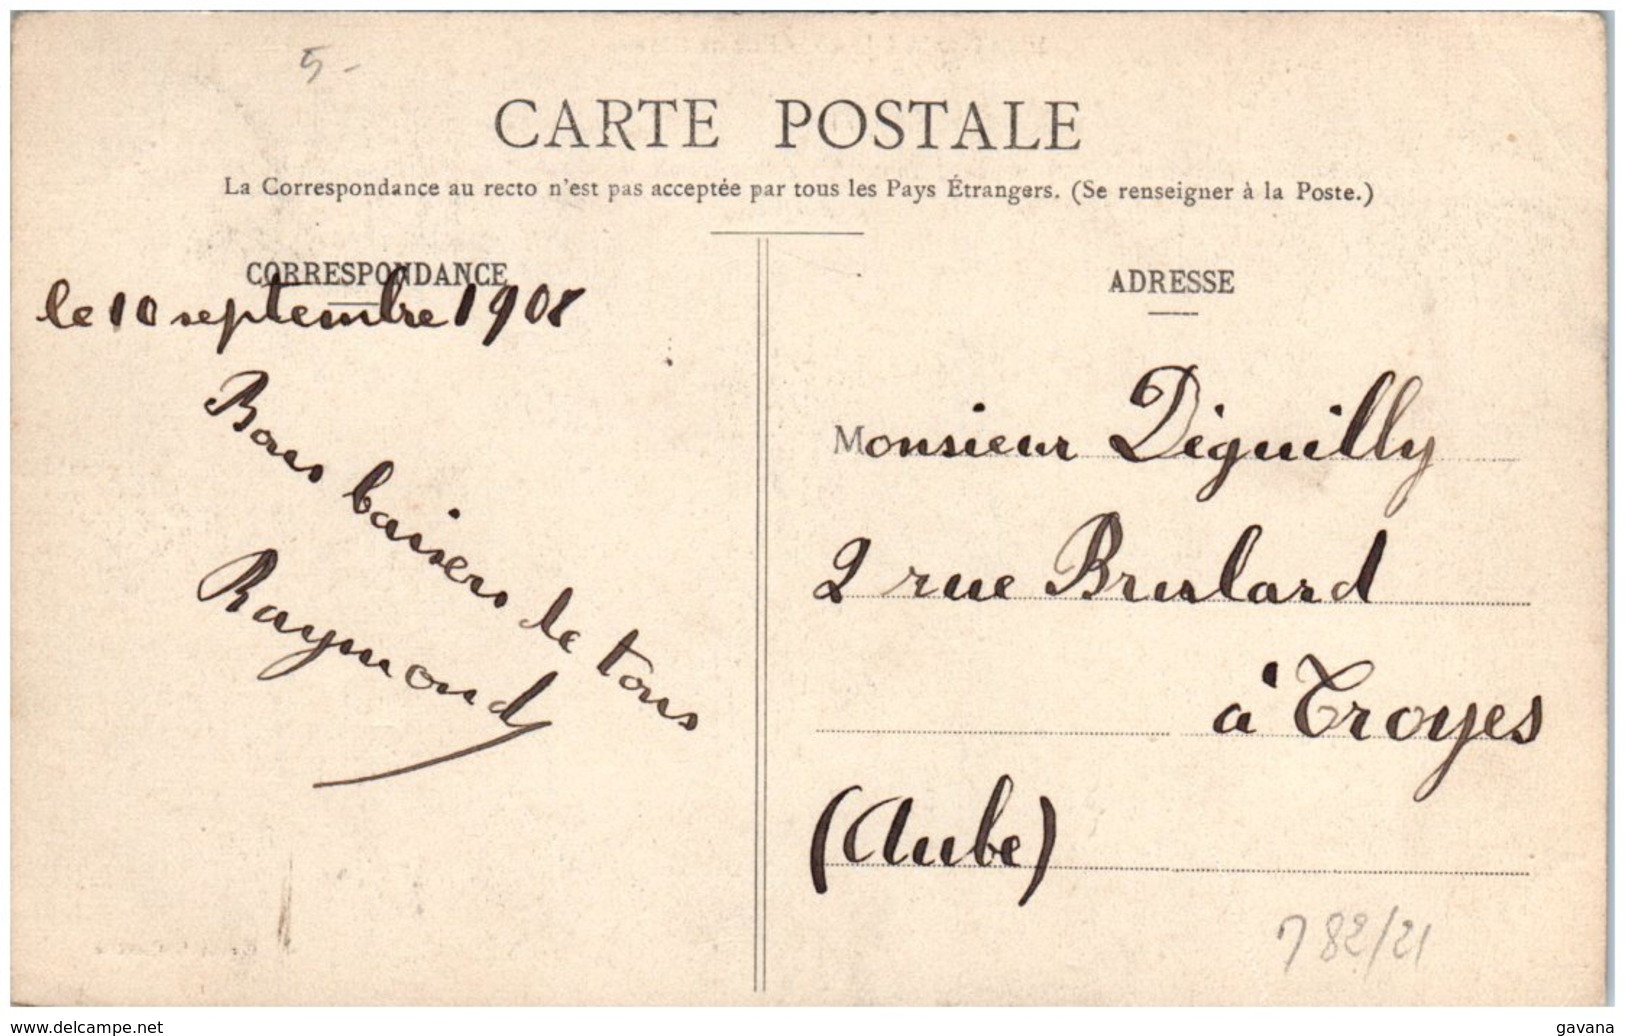 5-
CARTE POSTALE
La Correspondance au recto n'est pas acceptée par tous les Pays Étrangers. (Se renseigner à la Poste.)
CORRESPONDANCE
le 10 septembre 1908
Bons baisers de tous
Raymond
ADRESSE
Monsieur Diguilly
2 rue Brulard
à Troyes
(Aube)
782/21
www.delcampe.net
gavana